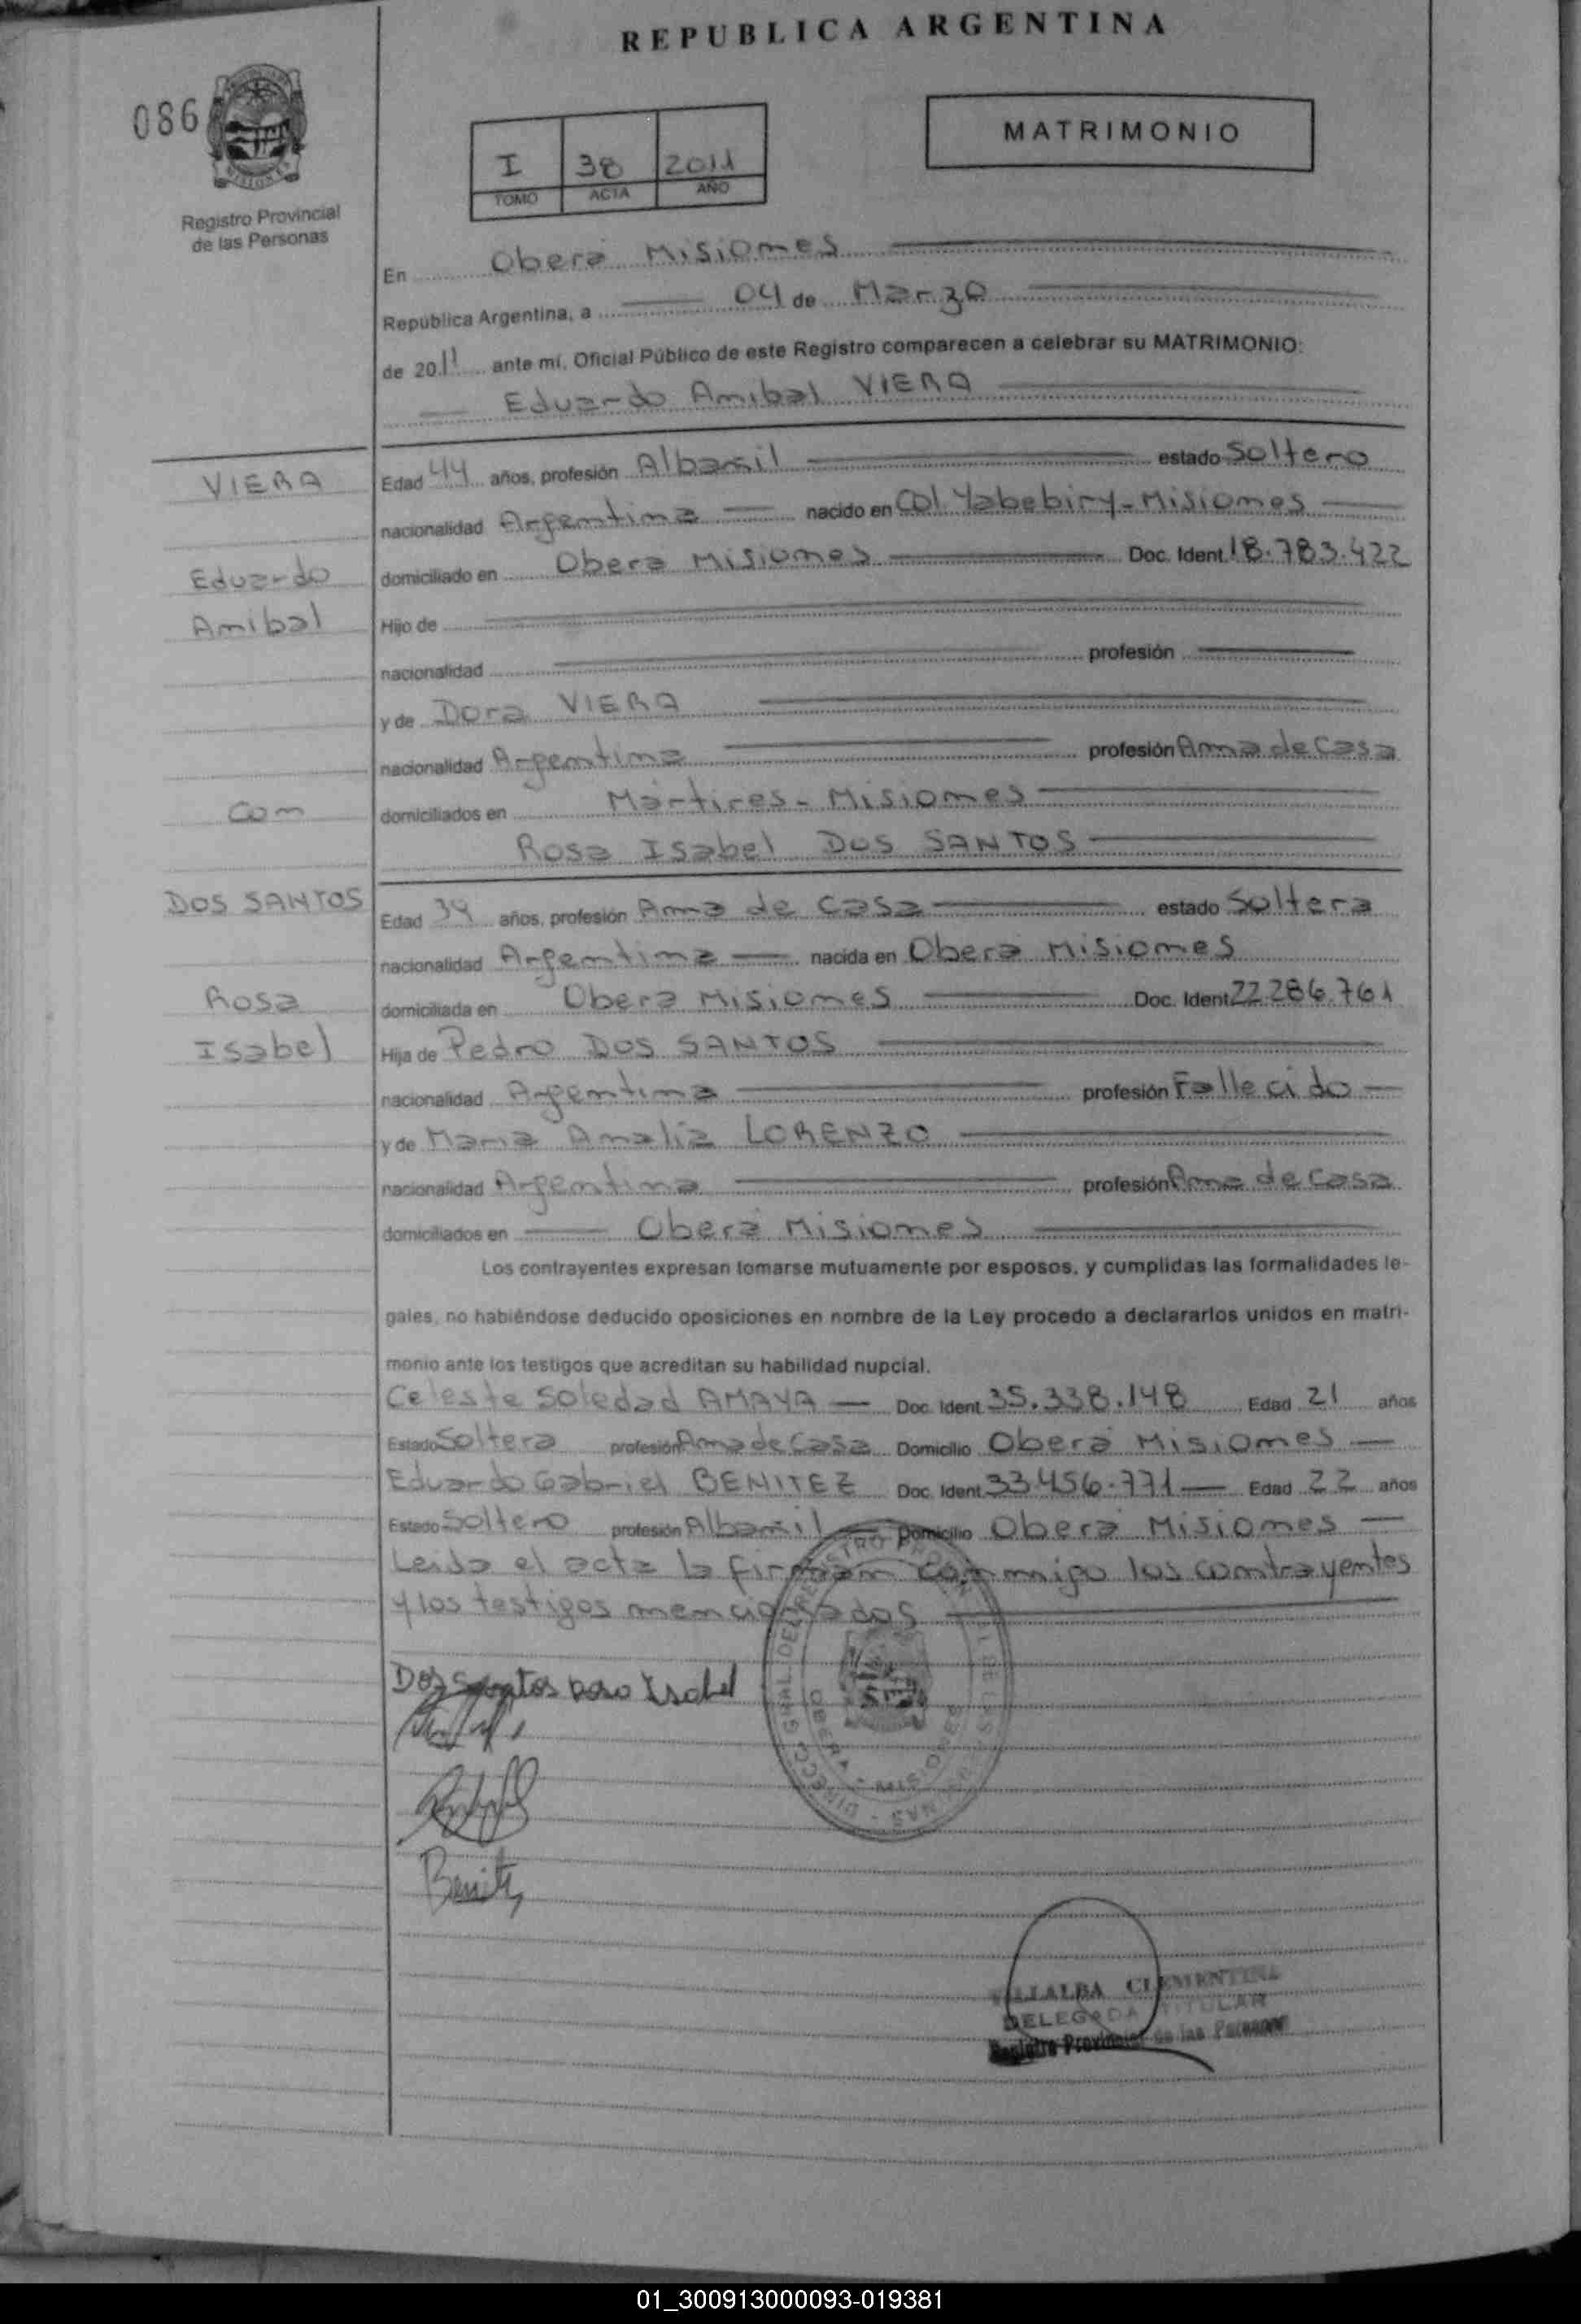 REPUBLICA ARGENTINA
086
MATRIMONIO
I 38 2011
TOMO ACTA AÑO
Registro Provincial
de las Personas
En Oberá Misiones
República Argentina, a 04 de Marzo
de 2011 ante mí, Oficial Público de este Registro comparecen a celebrar su MATRIMONIO:
Eduardo Anibal VIERA
VIERA
Edad 44 años, profesión Albañil estado Soltero
nacionalidad Argentina nacido en Col. Yabebiry-Misiones
Eduardo
domiciliado en Oberá Misiones Doc. Ident. 18.783.422
Anibal
Hijo de
nacionalidad profesión
y de Dora VIERA
nacionalidad Argentina profesión Ama de Casa
Con
domiciliados en Mártires-Misiones
Rosa Isabel DOS SANTOS
DOS SANTOS
Edad 39 años, profesión Ama de Casa estado Soltera
nacionalidad Argentina nacida en Oberá Misiones
Rosa
domiciliada en Oberá Misiones Doc. Ident. 22.286.761
Isabel
Hija de Pedro DOS SANTOS
nacionalidad Argentina profesión Fallecido
y de Maria Amalia LORENZO
nacionalidad Argentina profesión Ama de Casa
domiciliados en Oberá Misiones
Los contrayentes expresan tomarse mutuamente por esposos, y cumplidas las formalidades le-
gales, no habiéndose deducido oposiciones en nombre de la Ley procedo a declararlos unidos en matri-
monio ante los testigos que acreditan su habilidad nupcial.
Celeste Soledad AMAYA Doc. Ident. 35.338.148 Edad 21 años
Estado Soltera profesión Ama de Casa Domicilio Oberá Misiones
Eduardo Gabriel BENITEZ Doc. Ident. 33.456.771 Edad 22 años
Estado Soltero profesión Albañil Domicilio Oberá Misiones
Leida el acta la firman conmigo los contrayentes
y los testigos mencionados
Dos Santos Rosa Isabel
OBERA - MISIONES
Benitez
VILLALBA CLEMENTINA
DELEGADA TITULAR
Registro Provincial de las Personas
01_300913000093-019381